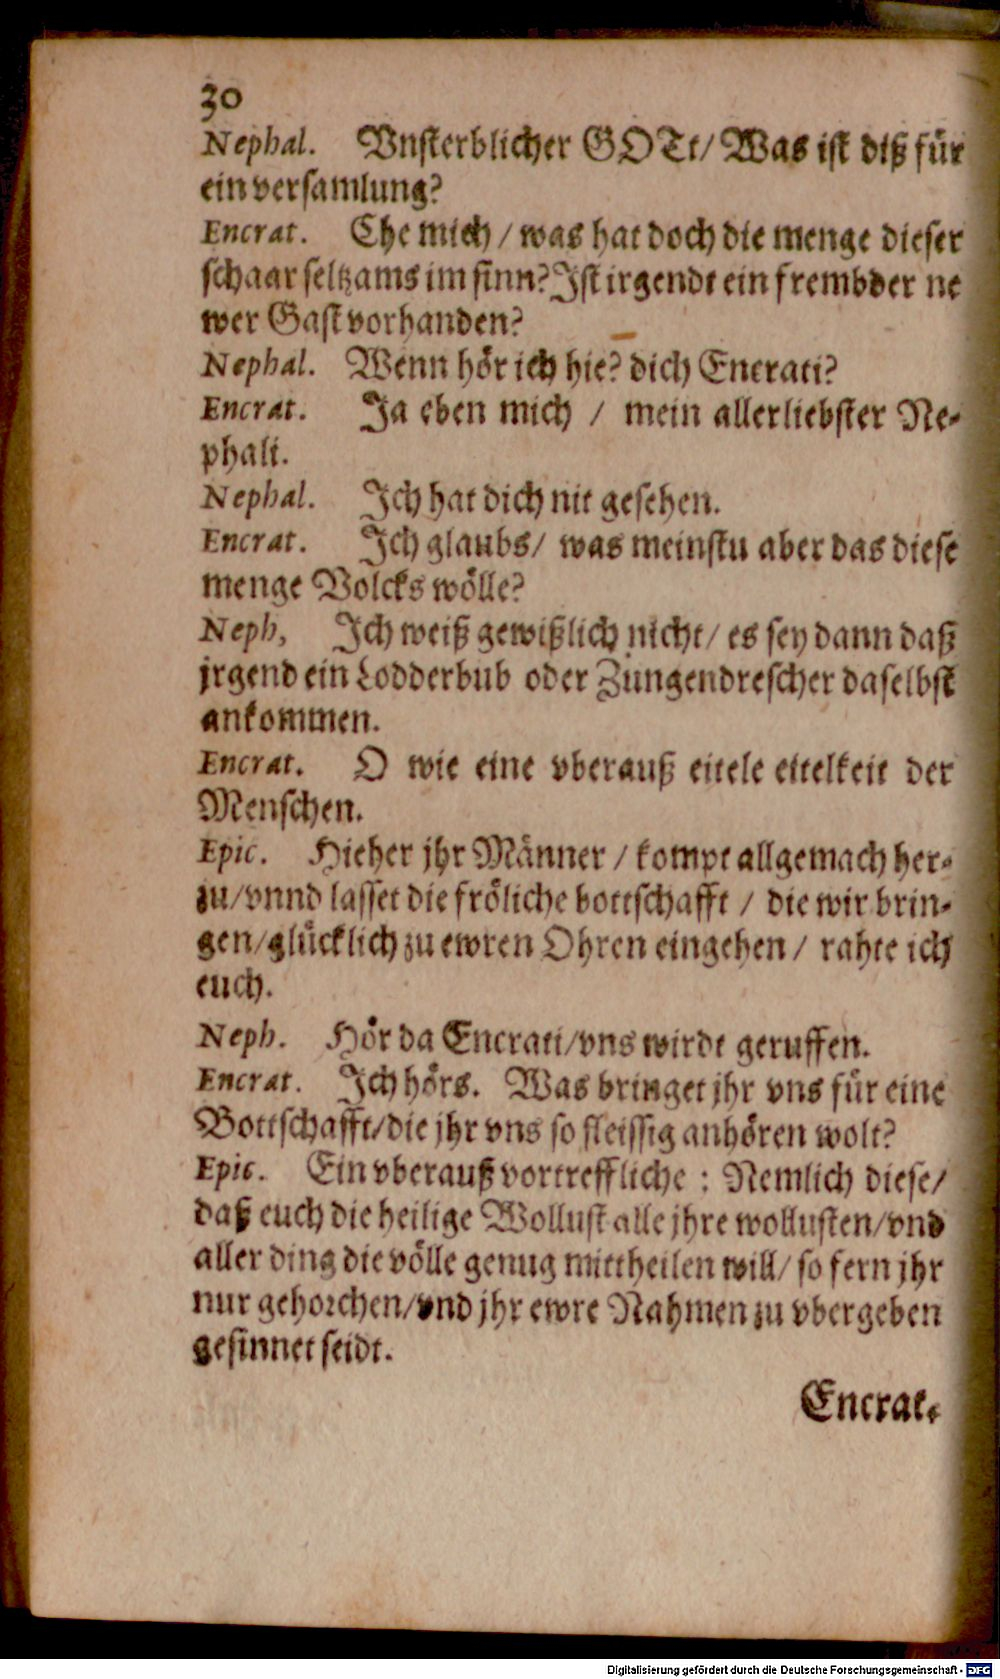 30
Nephal. Vnsterblicher GOTt/ Was ist diß für
ein versamlung?
Encrat. Ehe mich / was hat doch die menge dieser
schaar seltzams im sinn? Ist irgendt ein frembder ne
wer Gast vorhanden?
Nephal. Wenn hör ich hie? dich Encrati?
Encrat. Ja eben mich / mein allerliebster Ne-
phali.
Nephal. Ich hat dich nit gesehen.
Encrat. Ich glaubs/ was meinstu aber das diese
menge Volcks wölle?
Neph, Ich weiß gewißlich nicht/ es sey dann daß
jrgend ein Lodderbub oder Zungendrescher daselbst
ankommen.
Encrat. O wie eine vberauß eitele eitelkeit der
Menschen.
Epic. Hieher jhr Männer / kompt allgemach her-
zu/ vnnd lasset die fröliche bottschafft / die wir brin-
gen/ glücklich zu ewren Ohren eingehen / rahte ich
euch.
Neph. Hör da Encrati/ vns wirdt geruffen.
Encrat. Ich hörs. Was bringet jhr vns für eine
Bottschafft/ die jhr vns so fleissig anhören wolt?
Epic. Ein vberauß vortreffliche : Nemlich diese/
daß euch die heilige Wollust alle jhre wollusten/ vnd
aller ding die völle genug mittheilen will/ so fern jhr
nur gehorchen/ vnd jhr ewre Nahmen zu vbergeben
gesinnet seidt.
Encrat.
Digitalisierung gefördert durch die Deutsche Forschungsgemeinschaft - DFG